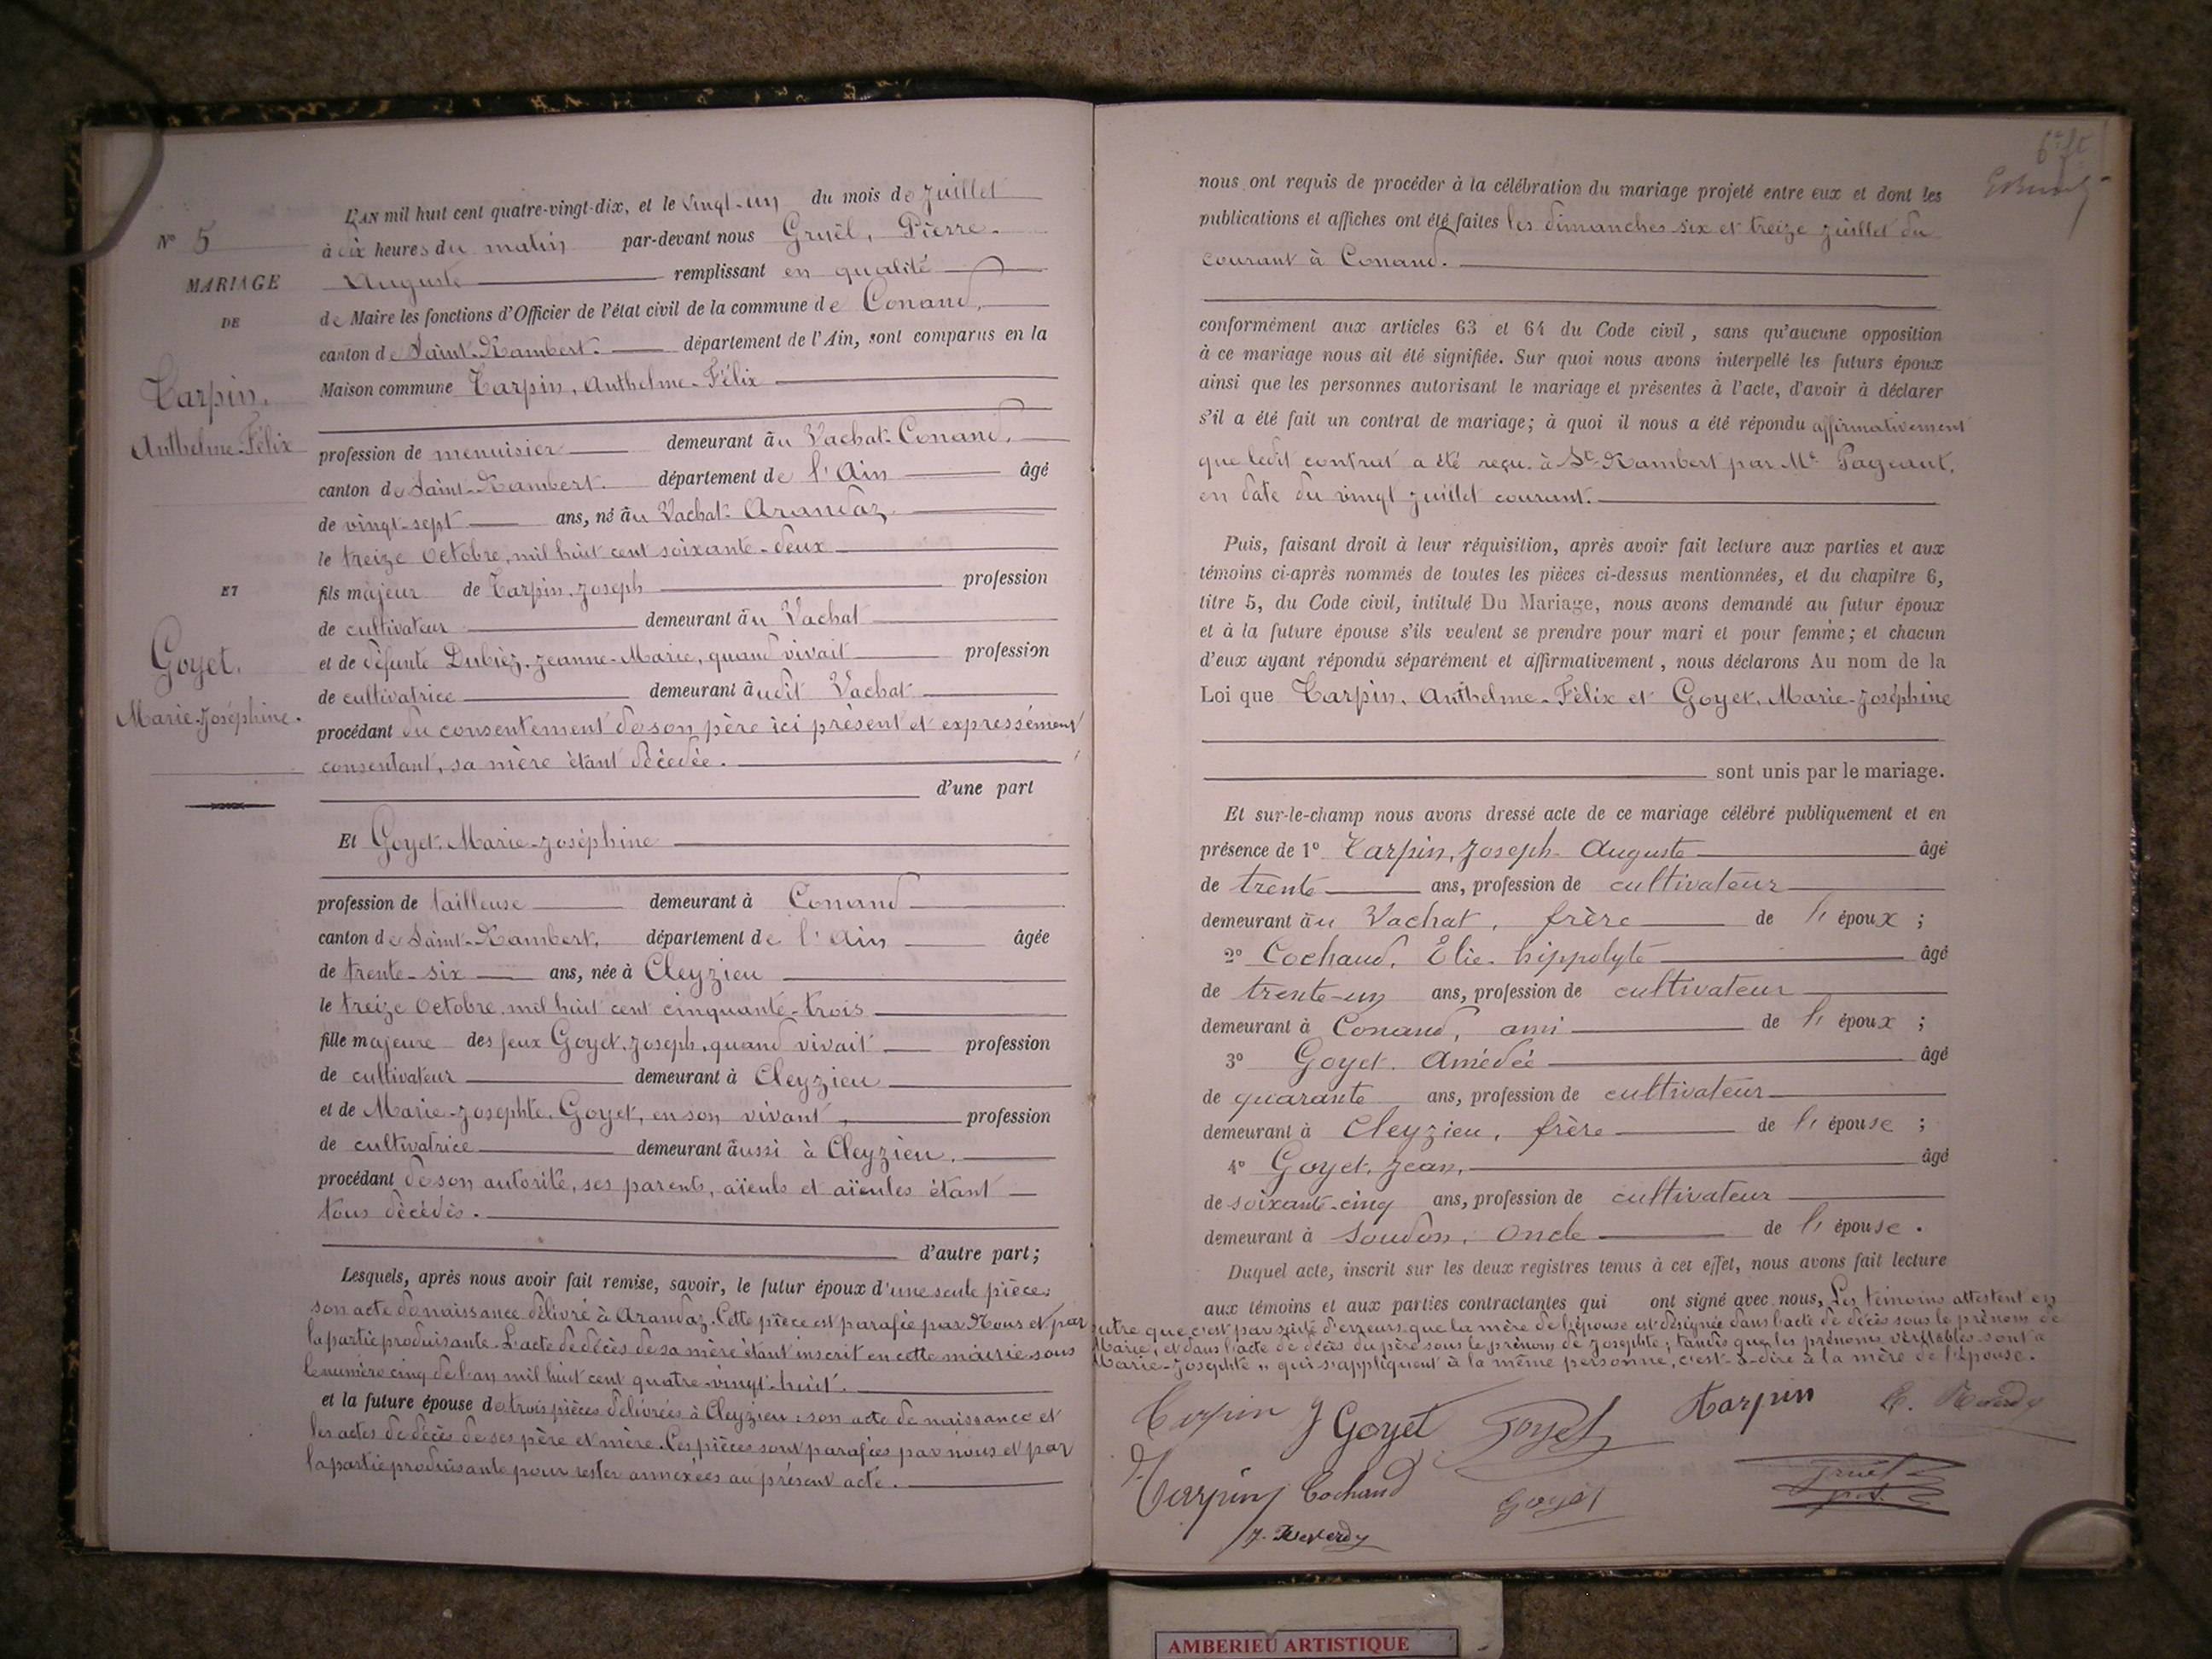 N° 5
MARIAGE
DE
Tarpin,
Anthelme-Félix
ET
Goyet,
Marie-Joséphine.
L'AN mil huit cent quatre-vingt-dix, et le vingt-un du mois de Juillet
à dix heures du matin par-devant nous Gruël, Pierre-
Auguste remplissant en qualité
de Maire les fonctions d'Officier de l'état civil de la commune de Conand,
canton de Saint-Rambert. département de l'Ain, sont comparus en la
Maison commune Tarpin, Anthelme-Félix
profession de menuisier demeurant au Vachat-Conand,
canton de Saint-Rambert. département de l'Ain âgé
de vingt-sept ans, né au Vachat-Arandaz
le treize Octobre, mil huit cent soixante-deux
fils majeur de Tarpin, Joseph profession
de cultivateur demeurant au Vachat
et de défunte Dubiez, Jeanne-Marie, quand vivait profession
de cultivatrice demeurant audit Vachat
procédant du consentement de son père ici présent et expressément
consentant, sa mère étant décédée.
d'une part
Et Goyet, Marie-Joséphine
profession de tailleuse demeurant à Conand
canton de Saint-Rambert, département de l'Ain âgée
de trente-six ans, née à Cleyzieu
le treize Octobre, mil huit cent cinquante-trois
fille majeure des feux Goyet, Joseph, quand vivait profession
de cultivateur demeurant à Cleyzieu
et de Marie-Josephte, Goyet, en son vivant, profession
de cultivatrice demeurant aussi à Cleyzieu.
procédant de son autorité, ses parents, aïeuls et aïeules étant
tous décédés.
d'autre part;
Lesquels, après nous avoir fait remise, savoir, le futur époux d'une seule pièce,
son acte de naissance délivré à Arandaz. Cette pièce est parafée par Nous et par
la partie produisante. L'acte de décès de sa mère étant inscrit en cette mairie sous
le numéro cinq de l'an mil huit cent quatre-vingt-huit.
et la future épouse de trois pièces délivrées à Cleyzieu: son acte de naissance et
les actes de décès de ses père et mère. Ces pièces sont parafées par nous et par
la partie produisante pour rester annexées au présent acte.
nous ont requis de procéder à la célébration du mariage projeté entre eux et dont les
publications et affiches ont été faites les dimanches six et treize juillet du
courant à Conand.
conformément aux articles 63 et 64 du Code civil, sans qu'aucune opposition
à ce mariage nous ait été signifiée. Sur quoi nous avons interpellé les futurs époux
ainsi que les personnes autorisant le mariage et présentes à l'acte, d'avoir à déclarer
s'il a été fait un contrat de mariage; à quoi il nous a été répondu affirmativement
que ledit contrat a été reçu à St-Rambert par Me Pageaut,
en date du vingt juillet courant.
Puis, faisant droit à leur réquisition, après avoir fait lecture aux parties et aux
témoins ci-après nommés de toutes les pièces ci-dessus mentionnées, et du chapitre 6,
titre 5, du Code civil, intitulé Du Mariage, nous avons demandé au futur époux
et à la future épouse s'ils veulent se prendre pour mari et pour femme; et chacun
d'eux ayant répondu séparément et affirmativement, nous déclarons Au nom de la
Loi que Tarpin, Anthelme-Félix et Goyet, Marie-Joséphine
sont unis par le mariage.
Et sur-le-champ nous avons dressé acte de ce mariage célébré publiquement et en
présence de 1° Tarpin, Joseph-Auguste âgé
de trente ans, profession de cultivateur
demeurant au Vachat, frère de l'époux;
2° Cochaud, Elie-hippolyte âgé
de trente-un ans, profession de cultivateur
demeurant à Conand, ami de l'époux;
3° Goyet, Amédée âgé
de quarante ans, profession de cultivateur
demeurant à Cleyzieu, frère de l'épouse;
4° Goyet, Jean, âgé
de soixante-cinq ans, profession de cultivateur
demeurant à Soudon, Oncle de l'épouse.
Duquel acte, inscrit sur les deux registres tenus à cet effet, nous avons fait lecture
aux témoins et aux parties contractantes qui ont signé avec nous, Les témoins attestent en
outre que c'est par suite d'erreurs que la mère de l'épouse est désignée dans l'acte de décès sous le prénom de
Marie, et dans l'acte de décès du père sous le prénom de Josephte; tandis que les prénoms véritables sont «
Marie-Josephte » qui s'appliquent à la même personne, c'est-à-dire à la mère de l'épouse.
Tarpin J Goyet Goyet Tarpin
Tarpin Cochaud Goyet Gruël
J. Reverdy
AMBERIEU ARTISTIQUE